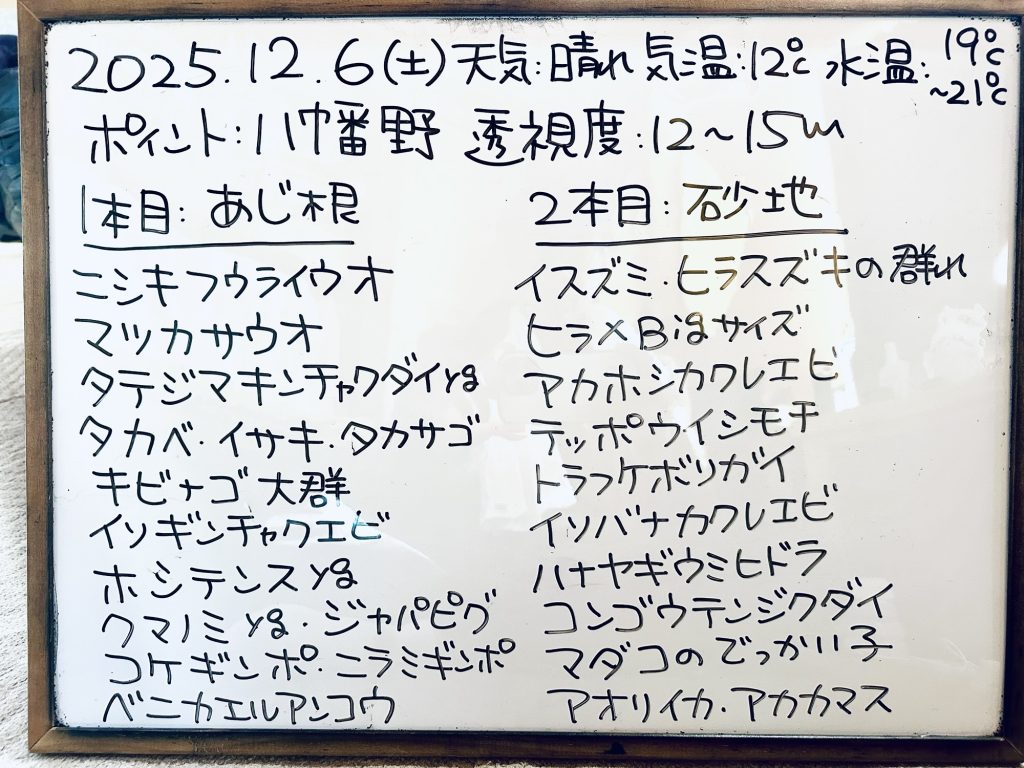 2025.12.6(土)天気:晴れ 気温:12℃ 水温:19℃~21℃
ポイント:八幡野 透視度:12~15m
1本目:あじ根
ニシキフウライウオ
マツカサウオ
タテジマキンチャクダイyg
タカベ・イサキ・タカサゴ
キビナゴ大群
イソギンチャクエビ
ホシテンスyg
クマノミyg・ジャパピグ
コケギンポ・ニラミギンポ
ベニカエルアンコウ
2本目:砂地
イスズミ・ヒラスズキの群れ
ヒラメBigサイズ
アカホシカクレエビ
テッポウイシモチ
トラフケボリガイ
イソバナカクレエビ
ハナヤギウミヒドラ
コンゴウテンジクダイ
マダコのでっかい子
アオリイカ・アカカマス